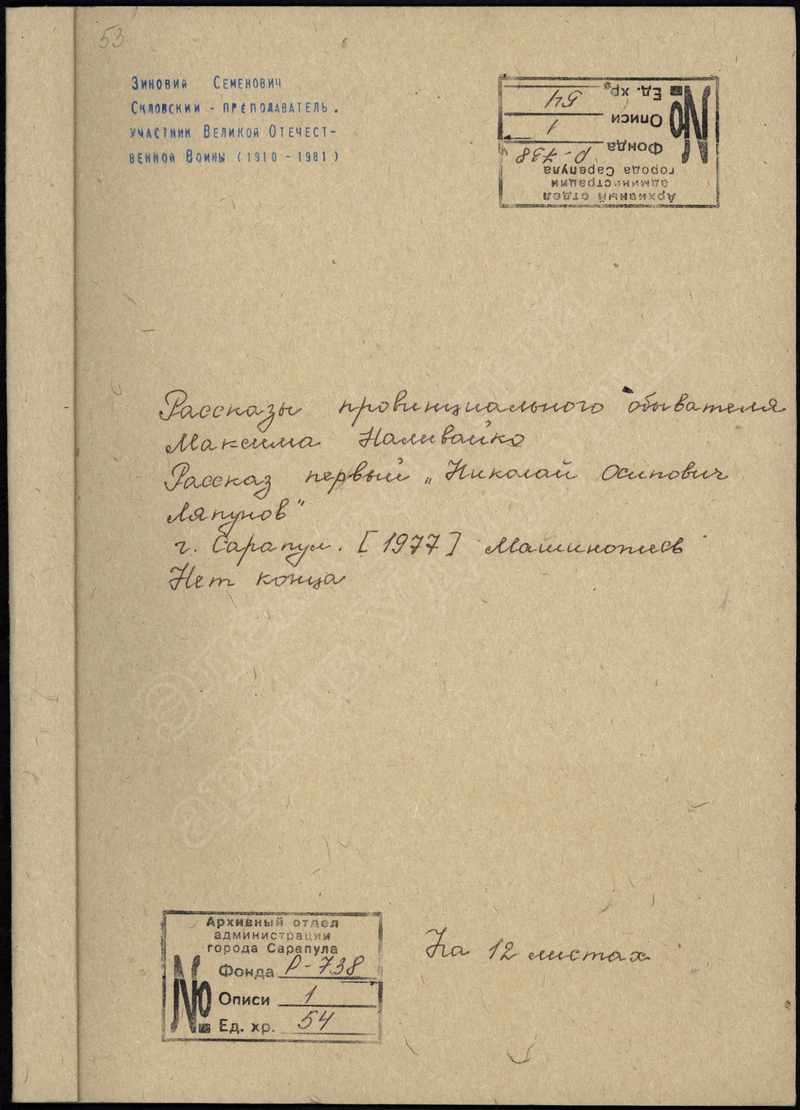 53
Зиновий Семенович
Скловский - преподаватель,
участник Великой Отечест-
венной Войны (1910 - 1981)
Архивный отдел
администрации
города Сарапула
№ Фонда Р-738
Описи 1
Ед. хр. 54
Рассказы провинциального обывателя
Максима Наливайко
Рассказ первый „Николай Осипович
Ляпунов"
г. Сарапул. [1977] Машинопись
Нет конца
На 12 листах
Архивный отдел
администрации
города Сарапула
№ Фонда Р-738
Описи 1
Ед. хр. 54